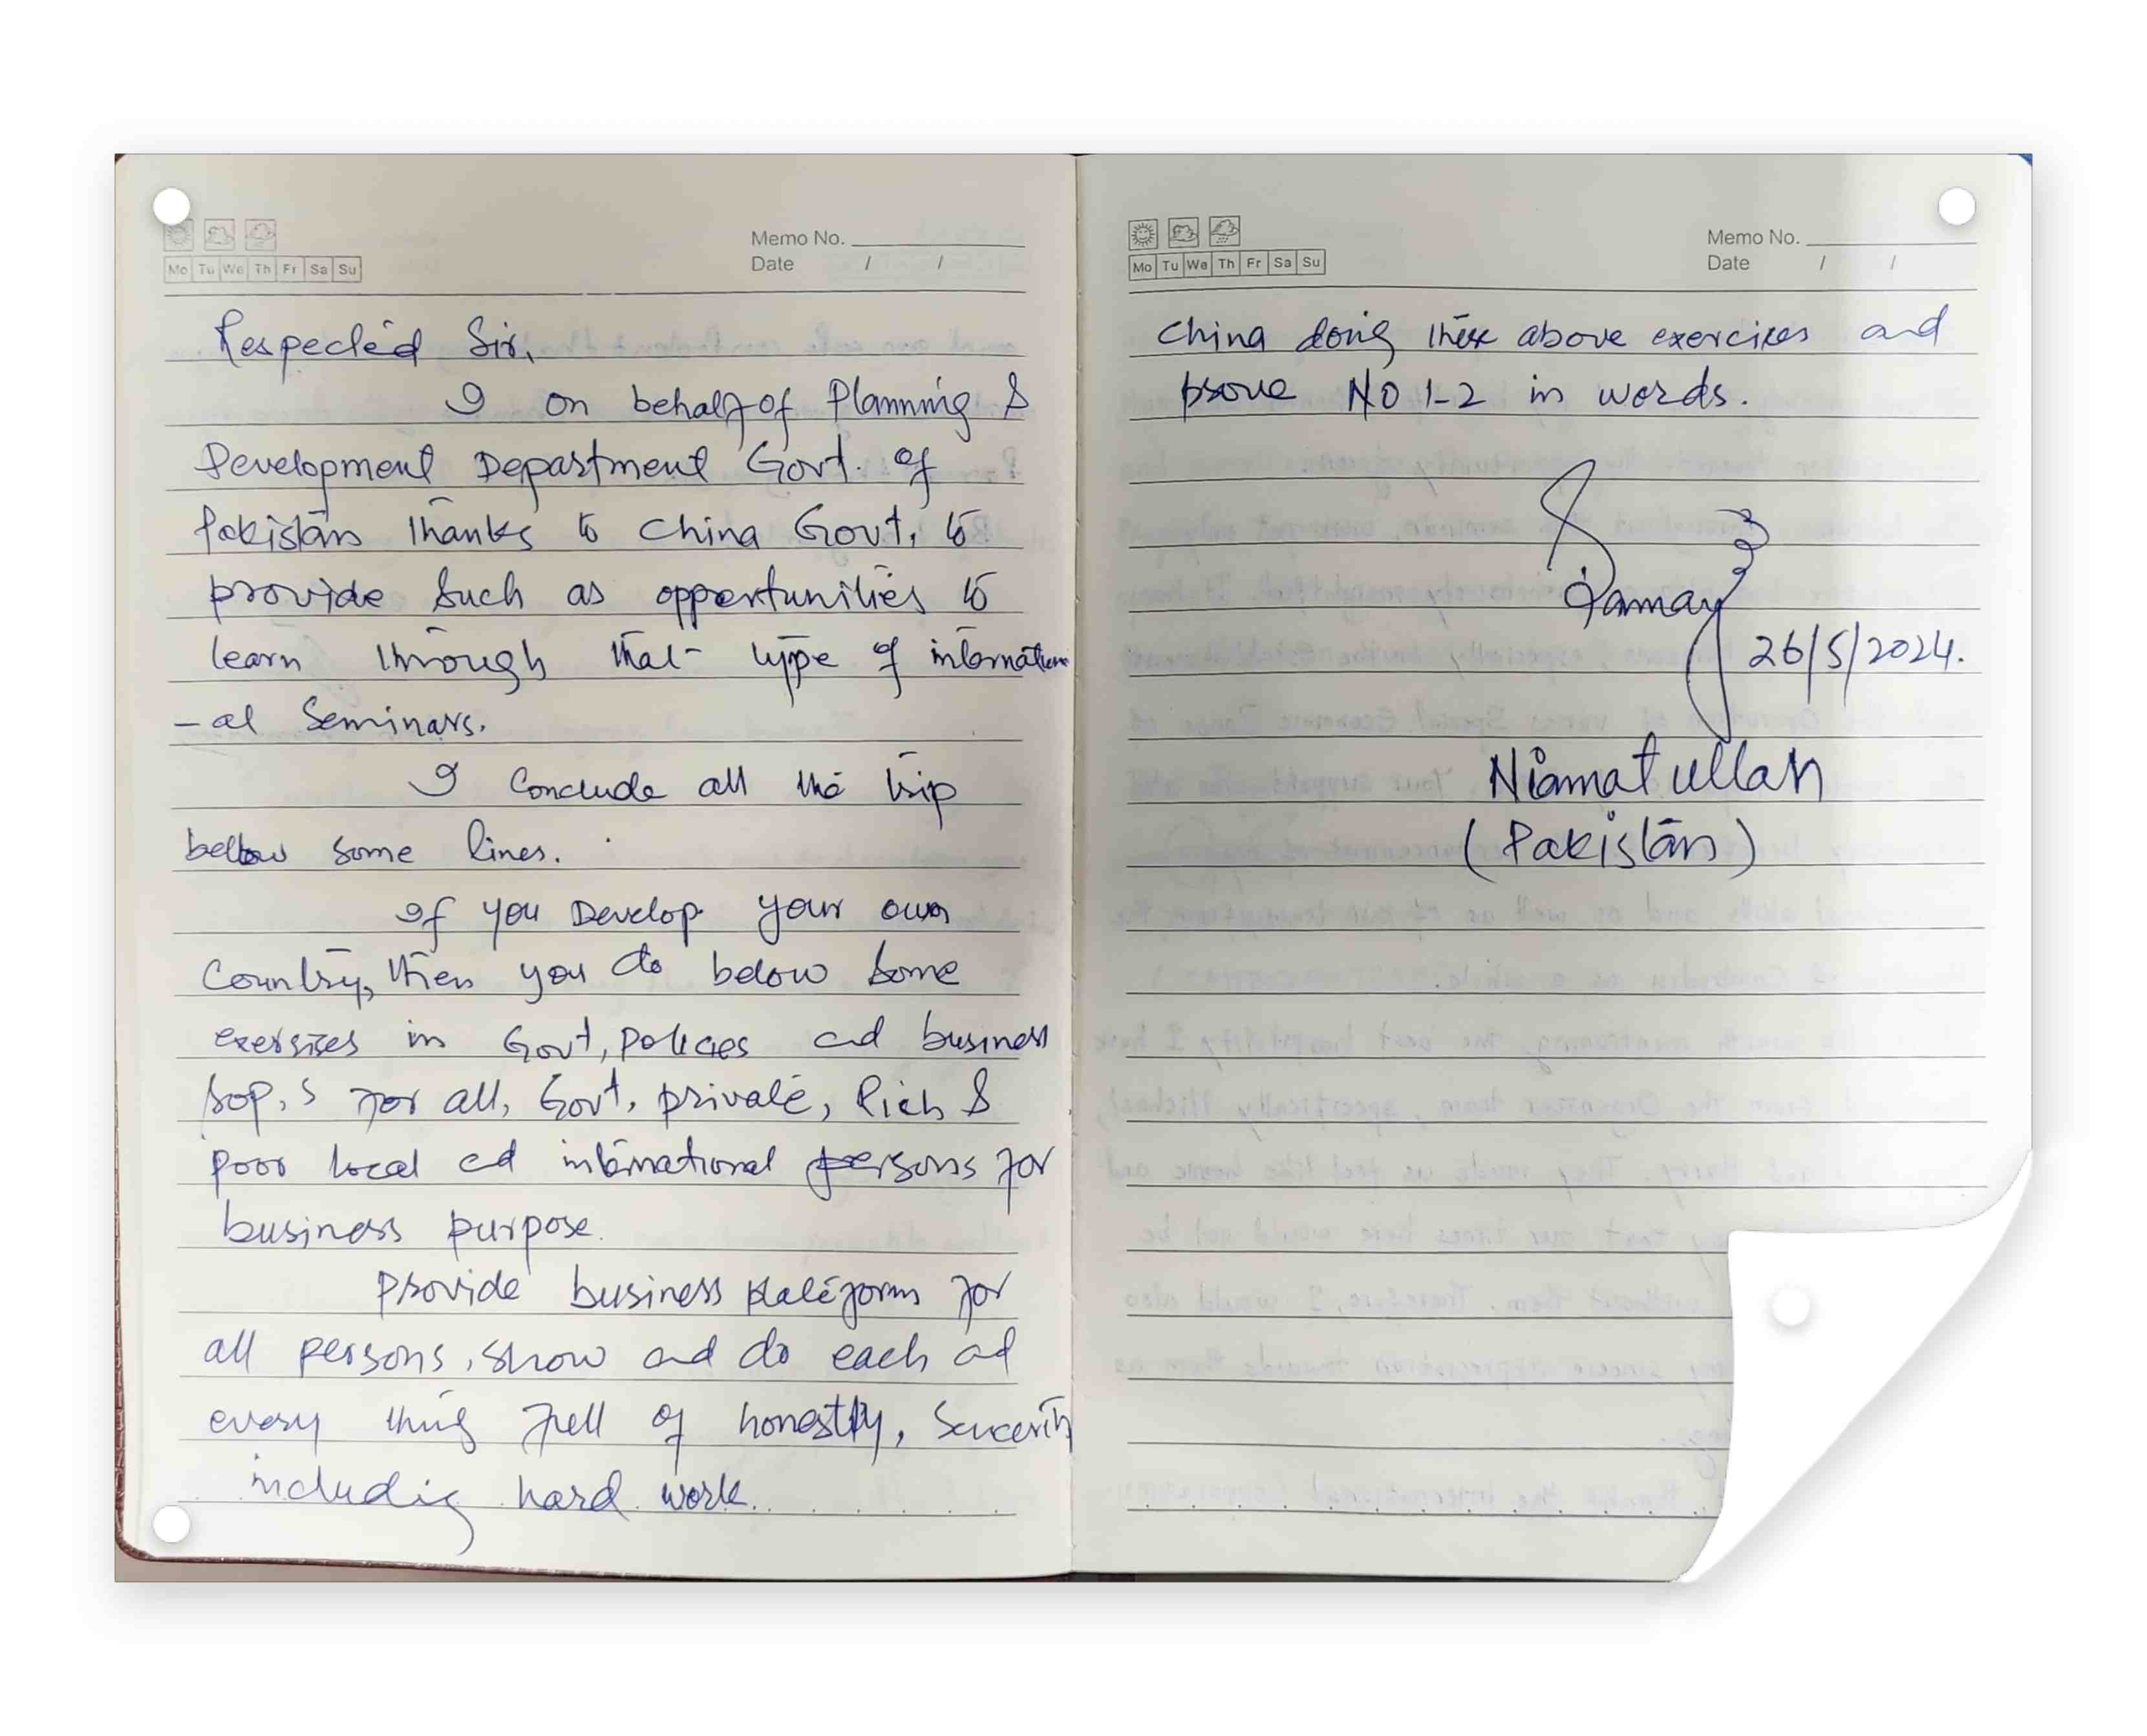 Memo No.
Mo Tu We Th Fr Sa Su
Date / /
Respected Sir,
I on behalf of Planning &
Development Department Govt. of
Pakistan thanks to China Govt, to
provide such as opportunities to
learn through that type of internation
-al Seminars.
I Conclude all the trip
bellow some lines.
If you Develop your own
Country, then you do below some
exersises in Govt, policies ad business
sop,s for all, Govt, private, Rich &
poor local ad international persons for
business purpose.
Provide business plateform for
all persons, show and do each ad
every thing full of honestly,
including hard work.
Memo No.
Mo Tu We Th Fr Sa Su
Date / /
China doing these above exercises and
prove NO 1-2 in words.
26/5/2024.
Niamatullah
(Pakistan)